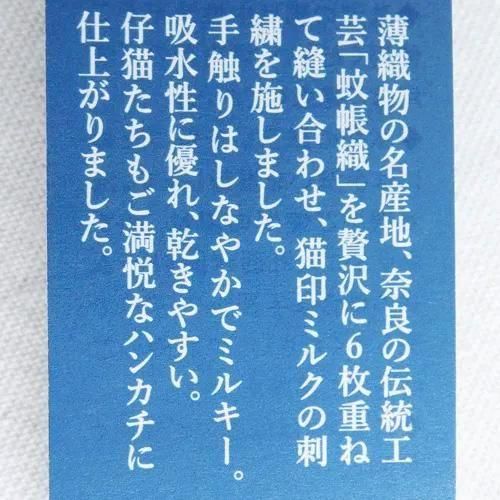 薄織物の名産地、奈良の伝統工
芸「蚊帳織」を贅沢に6枚重ね
て縫い合わせ、猫印ミルクの刺
繍を施しました。
手触りはしなやかでミルキー。
吸水性に優れ、乾きやすい。
仔猫たちもご満悦なハンカチに
仕上がりました。